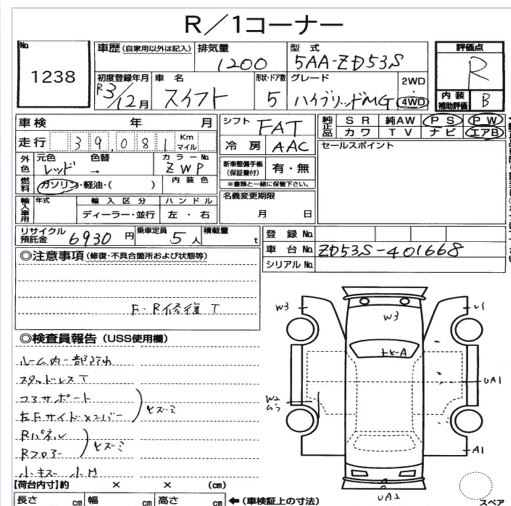 R／1コーナー
No.
1238
車歴 (自家用以外は記入)
排気量
1200
型式
5AA-ZD53S
評価点
R
初度登録年月
R3/12月
車名
スイフト
形状・ドア数
5
グレード
ハイブリッドMG
2WD
4WD
内装
補助評価
B
車検 年 月
走行 39,081 Km マイル
シフト
FAT
冷房
AAC
純正品
SR 純AW PS PW
カワ TV ナビ エアB
セールスポイント
外色
元色 色替
レッド →
カラーNo.
ZWP
燃料
ガソリン・軽油・( )
内装色
新車整備手帳
(保証書付)
有・無
※書類と一緒に保管下さい。
名義変更期限
月 日
輸入車用
年式
輸入区分
ディーラー・並行
ハンドル
左・右
リサイクル
預託金
6930円
乗車定員
5人
積載量
t
登録No.
車台No.
ZD53S-401668
シリアルNo.
◎注意事項 (修復・不具合箇所および状態等)
F・R修復 T
◎検査員報告 (USS使用欄)
スタッドレス T
コアサポート
左Fサイドメンバー
ヒズミ
Rパネル
Rフロアー
ヒズミ
小キズ 小凹
【荷台内寸】約 × × (cm)
長さ cm 幅 cm 高さ cm ← (車検証上の寸法)
W3
W3
U1
トビ-A
UA1
W2
A1
UA2
スペア